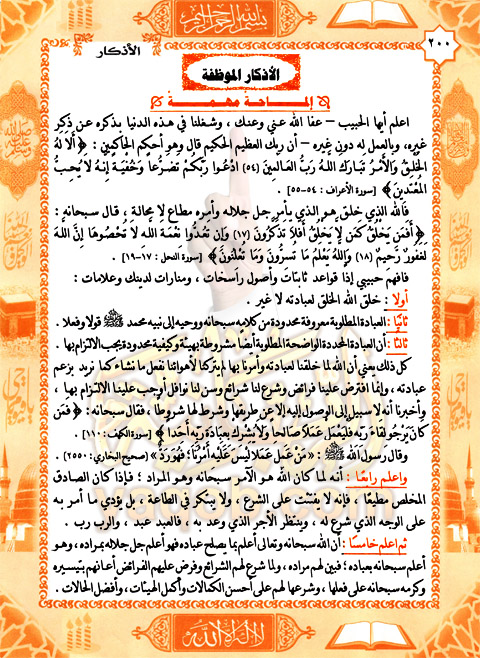 بسم الله الرحمن الرحيم
٢٠٠
الأذكار
الأذكار الموظفة
إلماحة مهمة
اعلم أيها الحبيب – عفا الله عني وعنك ، وشغلنا في هذه الدنيا بذكره عن ذكر
غيره، وبالعمل له دون غيره – أن ربك العظيم الحكيم قال وهو أحكم الحاكمين : ﴿ أَلَا لَهُ
الْخَلْقُ وَالْأَمْرُ تَبَارَكَ اللَّهُ رَبُّ الْعَالَمِينَ (٥٤) ادْعُوا رَبَّكُمْ تَضَرُّعًا وَخُفْيَةً إِنَّهُ لَا يُحِبُّ
الْمُعْتَدِينَ ﴾ [سورة الأعراف : ٥٤-٥٥] .
فالله الذي خلق هو الذي يأمر جل جلاله وأمره مطاع لا محالة ، قال سبحانه :
﴿ أَفَمَن يَخْلُقُ كَمَن لَّا يَخْلُقُ أَفَلَا تَذَكَّرُونَ (١٧) وَإِن تَعُدُّوا نِعْمَةَ اللَّهِ لَا تُحْصُوهَا إِنَّ اللَّهَ
لَغَفُورٌ رَّحِيمٌ (١٨) وَاللَّهُ يَعْلَمُ مَا تُسِرُّونَ وَمَا تُعْلِنُونَ ﴾ [سورة النحل : ١٧-١٩] .
فافهم حبيبي إذًا قواعد ثابتات وأصول راسخات ، ومنارات لدينك وعلامات :
أولا : خلق الله الخلق لعبادته لا غير .
ثانيًا : العبادة المطلوبة معروفة محدودة من كلامه سبحانه ووحيه إلى نبيه محمد ﷺ قولا وفعلا .
ثالثًا : أن العبادة المحددة الواضحة المطلوبة أيضًا مشروطة بهيئة وكيفية محدودة يجب الالتزام بها .
كل ذلك يعني أن الله لما خلقنا لعبادته وأمرنا بها لم يتركنا لأهوائنا نفعل ما نشاء كما نريد بزعم
عبادته ، وإنما افترض علينا فرائض وشرع لنا شرائع وسن لنا نوافل أوجب علينا الالتزام بها ،
وأخبرنا أنه لا سبيل إلى الوصول إليه إلا عن طريقها وشرط لها شروطًا ، فقال سبحانه : ﴿ فَمَن
كَانَ يَرْجُو لِقَاءَ رَبِّهِ فَلْيَعْمَلْ عَمَلًا صَالِحًا وَلَا يُشْرِكْ بِعِبَادَةِ رَبِّهِ أَحَدًا ﴾ [سورة الكهف : ١١٠] .
وقال رسول الله ﷺ : «مَنْ عَمِلَ عَمَلًا لَيْسَ عَلَيْهِ أَمْرُنَا ؛ فَهُوَ رَدٌّ» (صحيح البخاري : ٢٥٥٠) .
واعلم رابعًا : أنه لما كان الله هو الآمر سبحانه وهو المراد ؛ فإذا كان الصادق
المخلص مطيعًا ، فإنه لا يفتئت على الشرع ، ولا يبتكر في الطاعة ، بل يؤدي ما أمر به
على الوجه الذي شرع له ، وينتظر الأجر الذي وعد به ، فالعبد عبد ، والرب رب .
ثم اعلم خامسًا : أن الله سبحانه وتعالى أعلم بما يصلح عباده فهو أعلم جل جلاله بمراده، وهو
أعلم سبحانه بعباده ؛ فبين لهم مراده ، ولما شرع لهم الشرائع وفرض عليهم الفرائض أعانهم بتيسيره
وكرمه سبحانه على فعلها ، وشرعها لهم على أحسن الكمالات وأكمل الهيئات ، وأفضل الحالات .
لا إله إلا الله